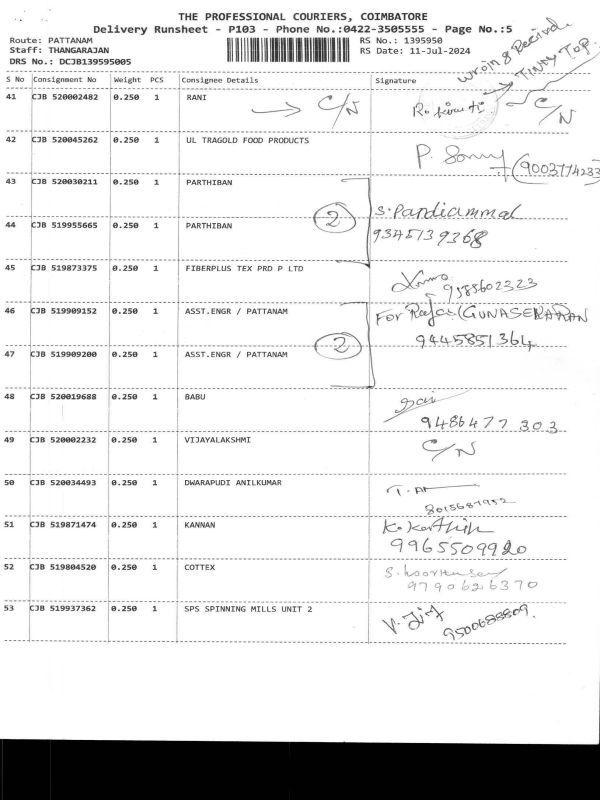 THE PROFESSIONAL COURIERS, COIMBATORE
Delivery Runsheet - P103 - Phone No.:0422-3505555 - Page No.:5
Route: PATTANAM RS No.: 1395950
Staff: THANGARAJAN RS Date: 11-Jul-2024
DRS No.: DCJB139595005
TINNY TOP.
S No Consignment No Weight PCS Consignee Details Signature
41 CJB 520002482 0.250 1 RANI → C/N C/N
42 CJB 520045262 0.250 1 UL TRAGOLD FOOD PRODUCTS P. Sonny
9003774233
43 CJB 520030211 0.250 1 PARTHIBAN
2 S. Pandiammal
44 CJB 519955665 0.250 1 PARTHIBAN 9345139368
45 CJB 519873375 0.250 1 FIBERPLUS TEX PRD P LTD
9585602323
46 CJB 519909152 0.250 1 ASST.ENGR / PATTANAM For (GUNASEKARAN
2 9445851364
47 CJB 519909200 0.250 1 ASST.ENGR / PATTANAM
48 CJB 520019688 0.250 1 BABU
9486477303
49 CJB 520002232 0.250 1 VIJAYALAKSHMI C/N
50 CJB 520034493 0.250 1 DWARAPUDI ANILKUMAR
51 CJB 519871474 0.250 1 KANNAN K. Karthik
9965509920
52 CJB 519804520 0.250 1 COTTEX
9790626370
53 CJB 519937362 0.250 1 SPS SPINNING MILLS UNIT 2
9500688809.